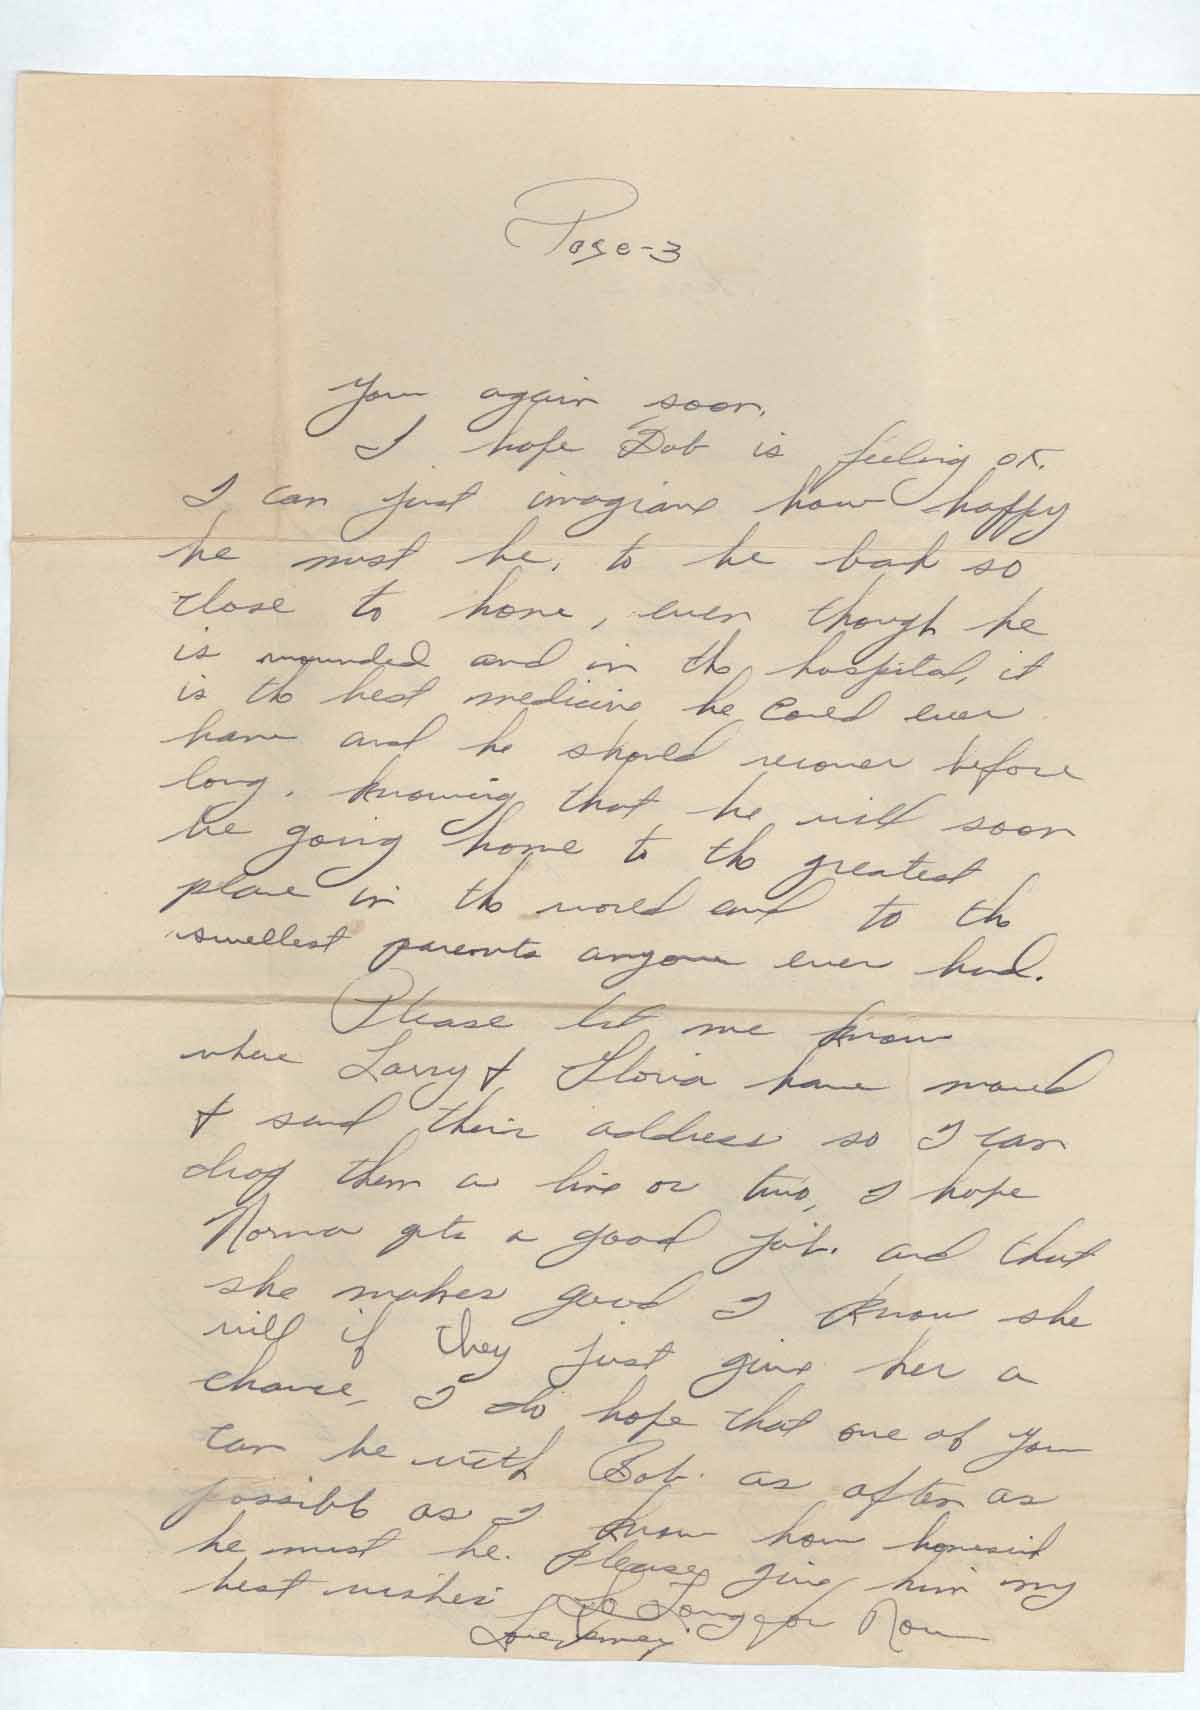 Page-3
you again soon.
I hope Bob is feeling OK.
I can just imagine how happy
he must be, to be back so
close to home, even though he
is wounded and in the hospital, it
is the best medicine he could ever
have and he should recover before
long. knowing that he will soon
be going home to the greatest
place in the world and to the
swellest parents anyone ever had.
Please let me know
where Larry & Gloria have moved
& send their address so I can
drop them a line or two, I hope
Norma gets a good job. and that
she makes good I know she
will if they just give her a
chance, I do hope that one of you
can be with Bob. as often as
possible as I know how homesick
he must be. Please give him my
best wishes So Long for Now
Love